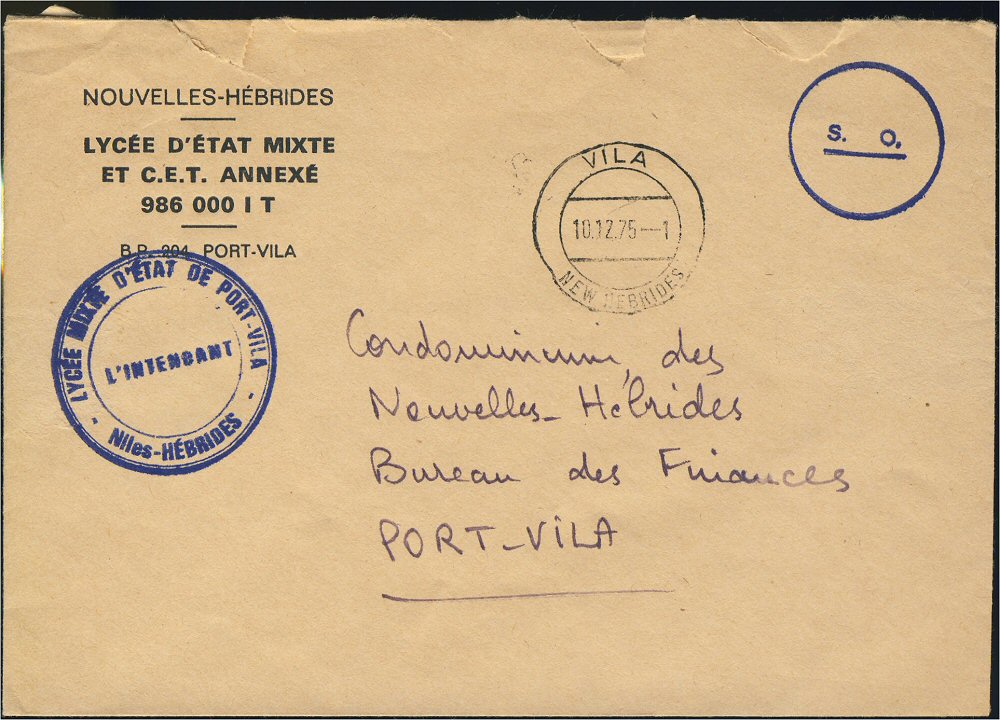 NOUVELLES-HÉBRIDES
LYCÉE D'ÉTAT MIXTE
ET C.E.T. ANNEXÉ
986 000 I T
B.P. 204 PORT-VILA
LYCÉE MIXTE D'ÉTAT DE PORT-VILA
L'INTENDANT
- Nlles-HÉBRIDES -
VILA
10.12.75--1
NEW HEBRIDES
S. O.
Condominium des
Nouvelles-Hébrides
Bureau des Finances
PORT-VILA